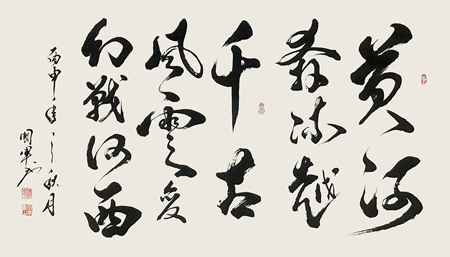 黄河
奔流越
千古
風雲变
幻戰河西
丙申年之秋月